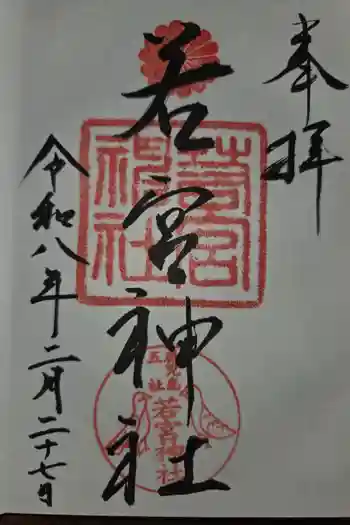 奉拝
若宮神社
令和八年二月二十七日
若宮神社
若宮神社